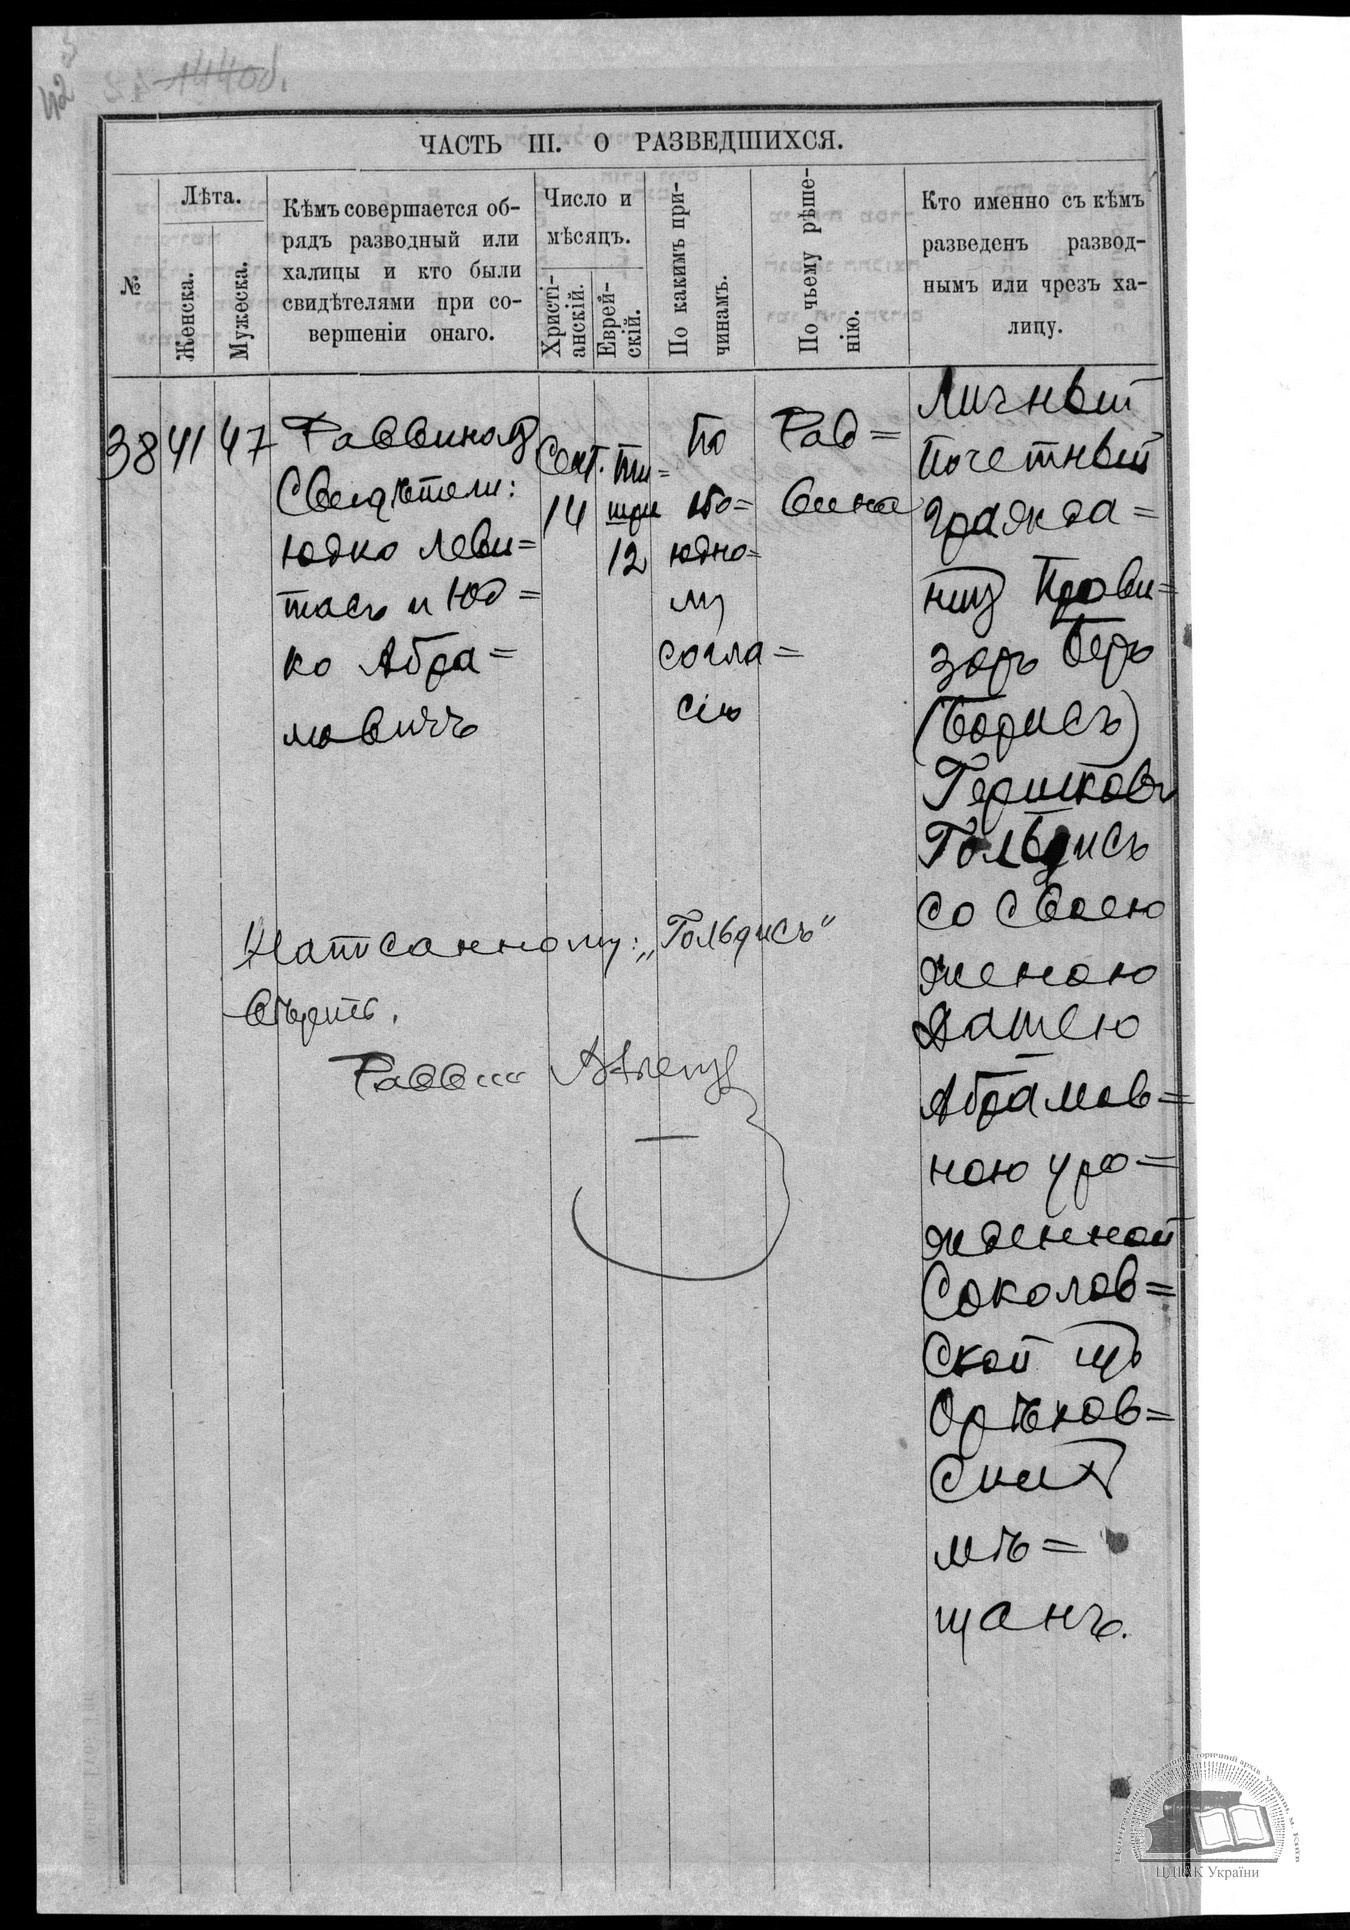 42
144об.
ЧАСТЬ III. О РАЗВЕДШИХСЯ.
№
Лѣта.
Женска.
Мужеска.
Кѣмъ совершается об-
рядъ разводный или
халицы и кто были
свидѣтелями при со-
вершеніи онаго.
Число и
мѣсяцъ.
Христі-
анскій.
Еврей-
скій.
По какимъ при-
чинамъ.
По чьему рѣше-
нію.
Кто именно съ кѣмъ
разведенъ развод-
нымъ или чрезъ ха-
лицу.
38
41
47
Раввиномъ
Свидѣтели:
Юдко Леви=
тасъ и Юд=
ко Абра=
мовичъ
Сент.
14
Ти=
шри
12
По
обо=
юдно=
му
согла=
сію
Рав=
вина
Личный
Почетный
гражда=
нинъ Прови=
зоръ Беръ
(Борисъ)
Гершковъ
Гольдисъ
со своею
женою
Абрамов=
ною уро=
жденной
Соколов=
ской изъ
Орѣхов=
скихъ
мѣ=
щанъ.
Написанному: „Гольдисъ"
вѣрить.
Раввин
Центральний державний історичний архів України, м. Київ
ЦДІАК України